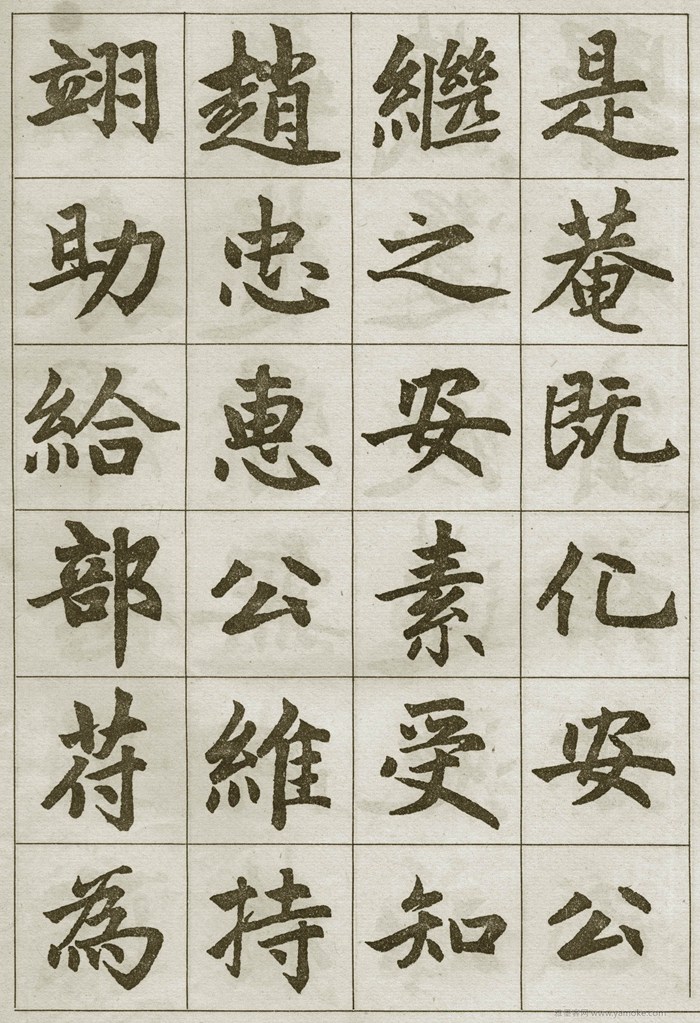 是菴既化安公
繼之安素受知
趙忠惠公維持
翊助給部苻為
雅墨客网 www.yamoke.com